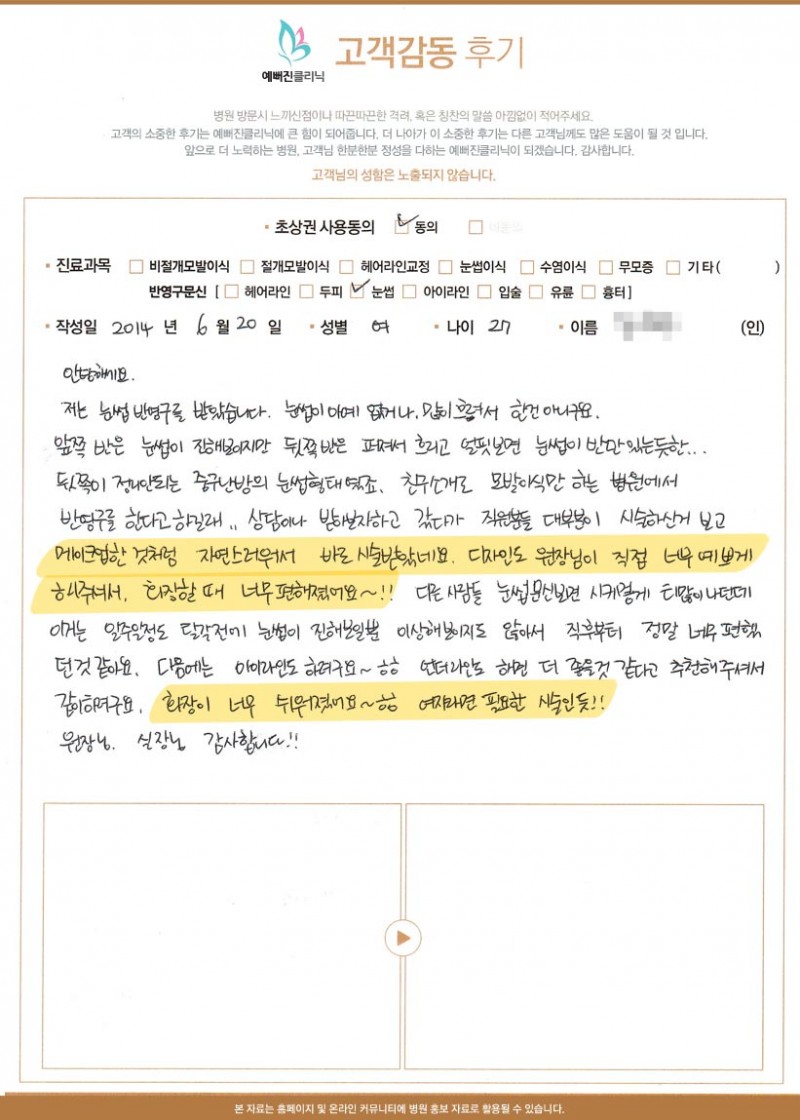 예뻐진클리닉
고객감동 후기
병원 방문시 느끼신점이나 따끈따끈한 격려, 혹은 칭찬의 말씀 아낌없이 적어주세요.
고객의 소중한 후기는 예뻐진클리닉에 큰 힘이 되어줍니다. 더 나아가 이 소중한 후기는 다른 고객님께도 많은 도움이 될 것 입니다.
앞으로 더 노력하는 병원, 고객님 한분한분 정성을 다하는 예뻐진클리닉이 되겠습니다. 감사합니다.
고객님의 성함은 노출되지 않습니다.
초상권 사용동의 동의 비동의
진료과목 비절개모발이식 절개모발이식 헤어라인교정 눈썹이식 수염이식 무모증 기타( )
반영구문신 [ 헤어라인 두피 눈썹 아이라인 입술 유륜 흉터 ]
작성일 2014 년 6 월 20 일 성별 여 나이 27 이름 (인)
안녕하세요.
저는 눈썹 반영구를 받았습니다. 눈썹이 아예 없거나, 많이 흐려서 한건 아니구요.
앞쪽 반은 눈썹이 진해보이지만 뒷쪽 반은 퍼져서 흐리고 얼핏보면 눈썹이 반만 있는듯한...
뒷쪽이 정리안되는 중구난방의 눈썹형태였죠. 친구소개로 모발이식만 하는 병원에서
반영구를 한다고 하길래.. 상담이나 받아보자하고 갔다가 직원분들 대부분이 시술하신거 보고
메이크업한 것처럼 자연스러워서 바로 시술받았네요. 디자인도 원장님이 직접 너무 예쁘게
해주셔서, 화장할 때 너무 편해졌어요~!! 다른 사람들 눈썹문신보면 시커멓게 티많이 나던데
이거는 일주일정도 탈각전에 눈썹이 진해보일뿐 이상해보이지도 않아서 직후부터 정말 너무 편했
던것 같아요. 다음에는 아이라인도 하려구요~ㅎㅎ 언더라인도 하면 더 좋을것 같다고 추천해주셔서
같이하려구요. 화장이 너무 쉬워졌어요~ㅎㅎ 여자라면 필요한 시술인듯!!
원장님. 실장님 감사합니다!!
본 자료는 홈페이지 및 온라인 커뮤니티에 병원 홍보 자료로 활용될 수 있습니다.